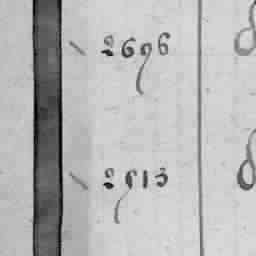 2696
2913